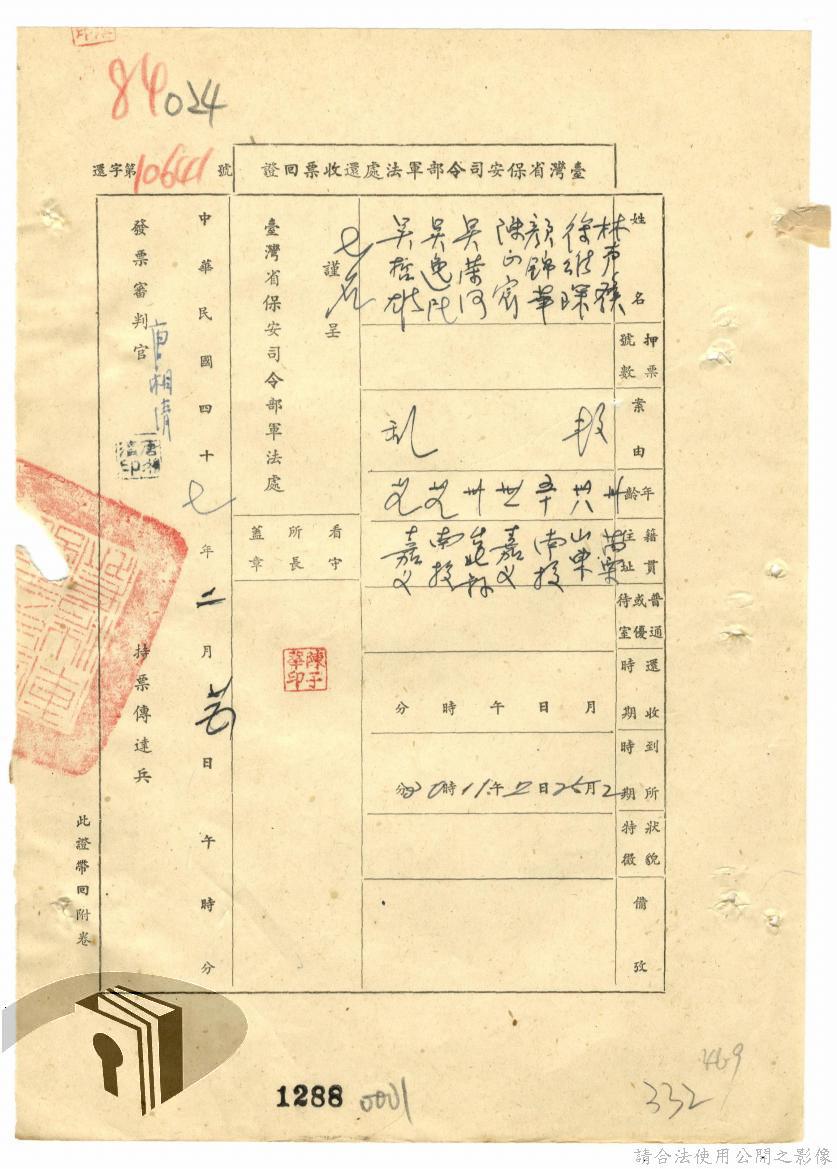 84024
臺灣省保安司令部軍法處還收票回證
還字第10641號
姓名
林
徐
顏錦華
陳
吳榮河
吳逸民
吳哲雄
押票號數
案由
叛
乱
年齡
卅
五十
卅
籍貫住址
苗栗
山東
南投
嘉义
南投
嘉义
普通或優待室
還收時期
月 日 午 時 分
到所時期
2月25日 午11時 分
狀貌特徵
備攷
七名
謹呈
臺灣省保安司令部軍法處
看守所長蓋章
陳子華印
中華民國四十七年二月 日 午 時 分
發票審判官 唐湘清
唐湘清印
持票傳達兵
此證帶回附卷
1288
0001
332
469
請合法使用公開之影像